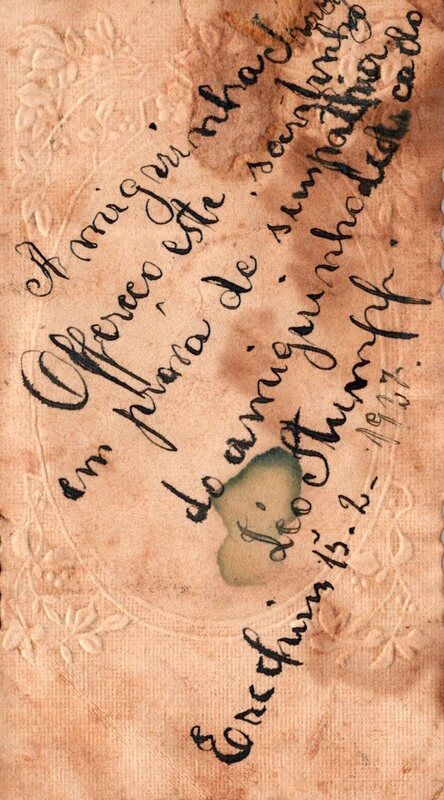 A miguinha
Offereco este santinho
em prova de simpathia
do amiguinho dedicado
Léo Stumpf.
Erechim 15-2-1937.